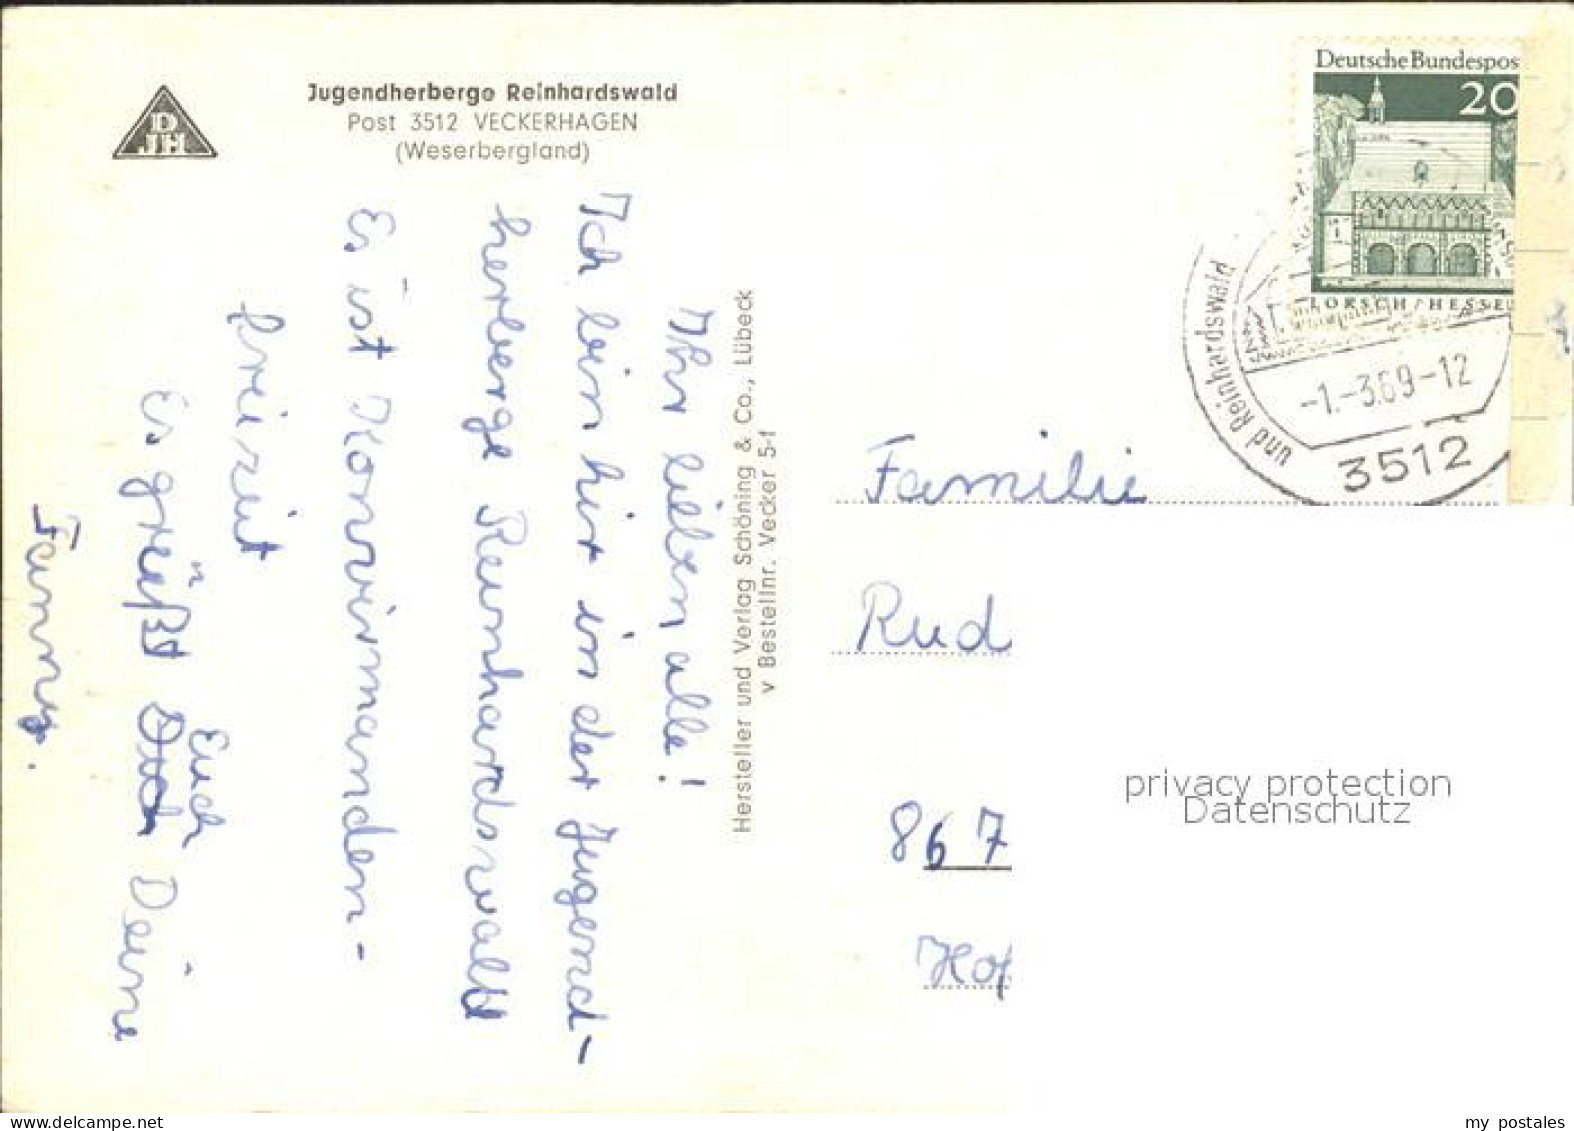 D
JH
Jugendherberge Reinhardswald
Post 3512 VECKERHAGEN
(Weserbergland)
Ihr lieben alle!
Ich bin hir in der Jugend-
herberge Reinhardswald
Es ist Konvirmanden-
freizeit
Es grüßt Euch Deine
Fanny.
Hersteller und Verlag Schöning & Co., Lübeck
v Bestellnr. Vecker 5-1
Deutsche Bundespos
20
LORSCH/HESSE
und Reinhardswald
-1.-3.69-12
3512
Familie
Rud
867
Hof
privacy protection
Datenschutz
my postales
www.delcampe.net